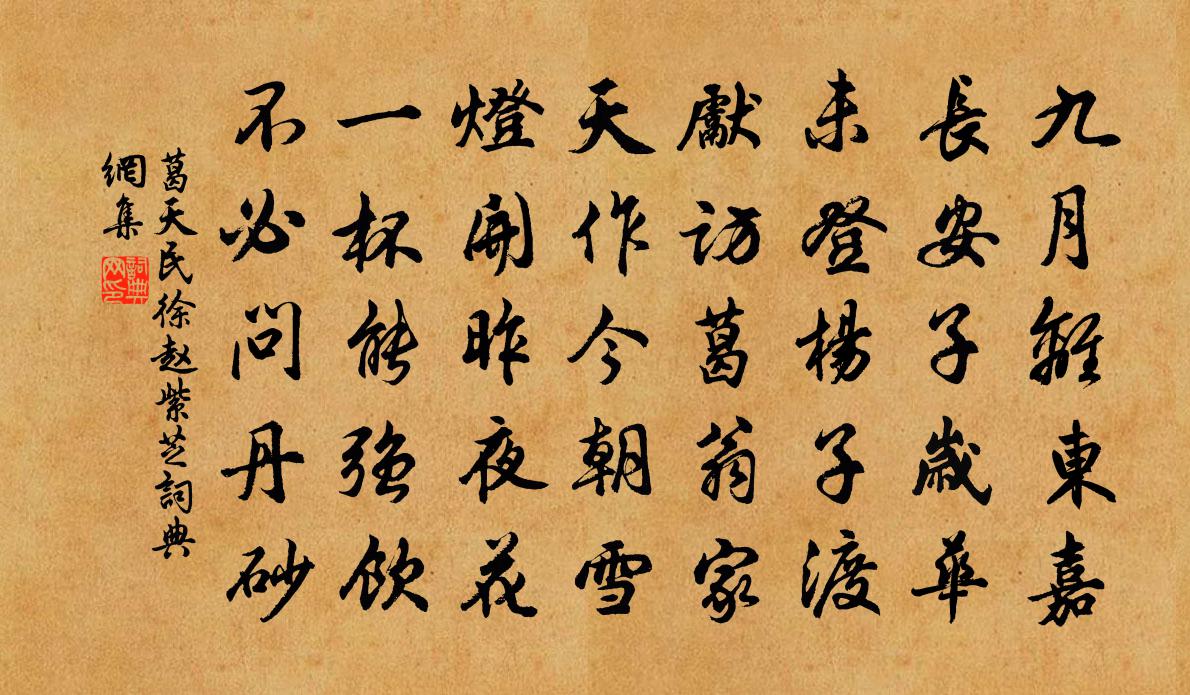 九月離東嘉
長安子歲華
未登楊子渡
獻訪葛翁家
天作今朝雪
燈開昨夜花
一杯能強飲
不必問丹砂
葛天民徐赵紫芝詞典
網集
詞典
网印